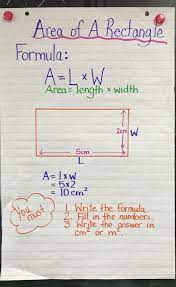 Area of A Rectangle
Formula:
A = L × W
Area = length × width
2cm W
5cm
L
A = l × w
= 5×2
= 10 cm²
You must
1. Write the formula.
2. Fill in the numbers.
3. Write the answer in
cm² or m².